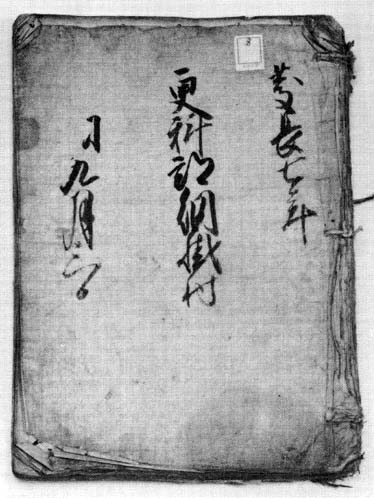 慶長七年
更科郡網掛村
刁九月